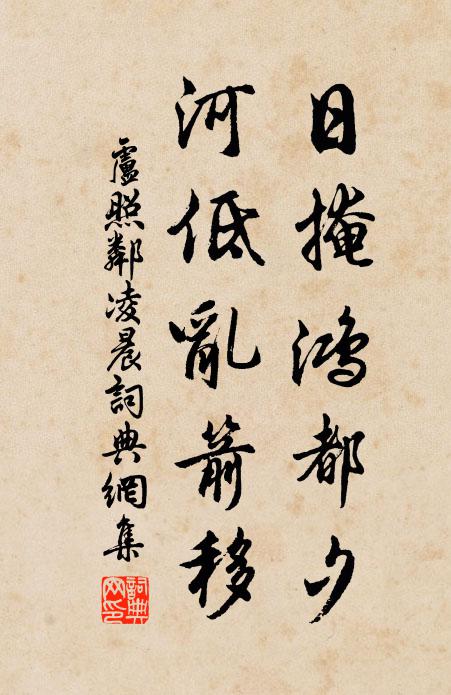 日掩鴻都夕
河低亂箭移
盧照鄰凌晨詞典網集
詞典網印